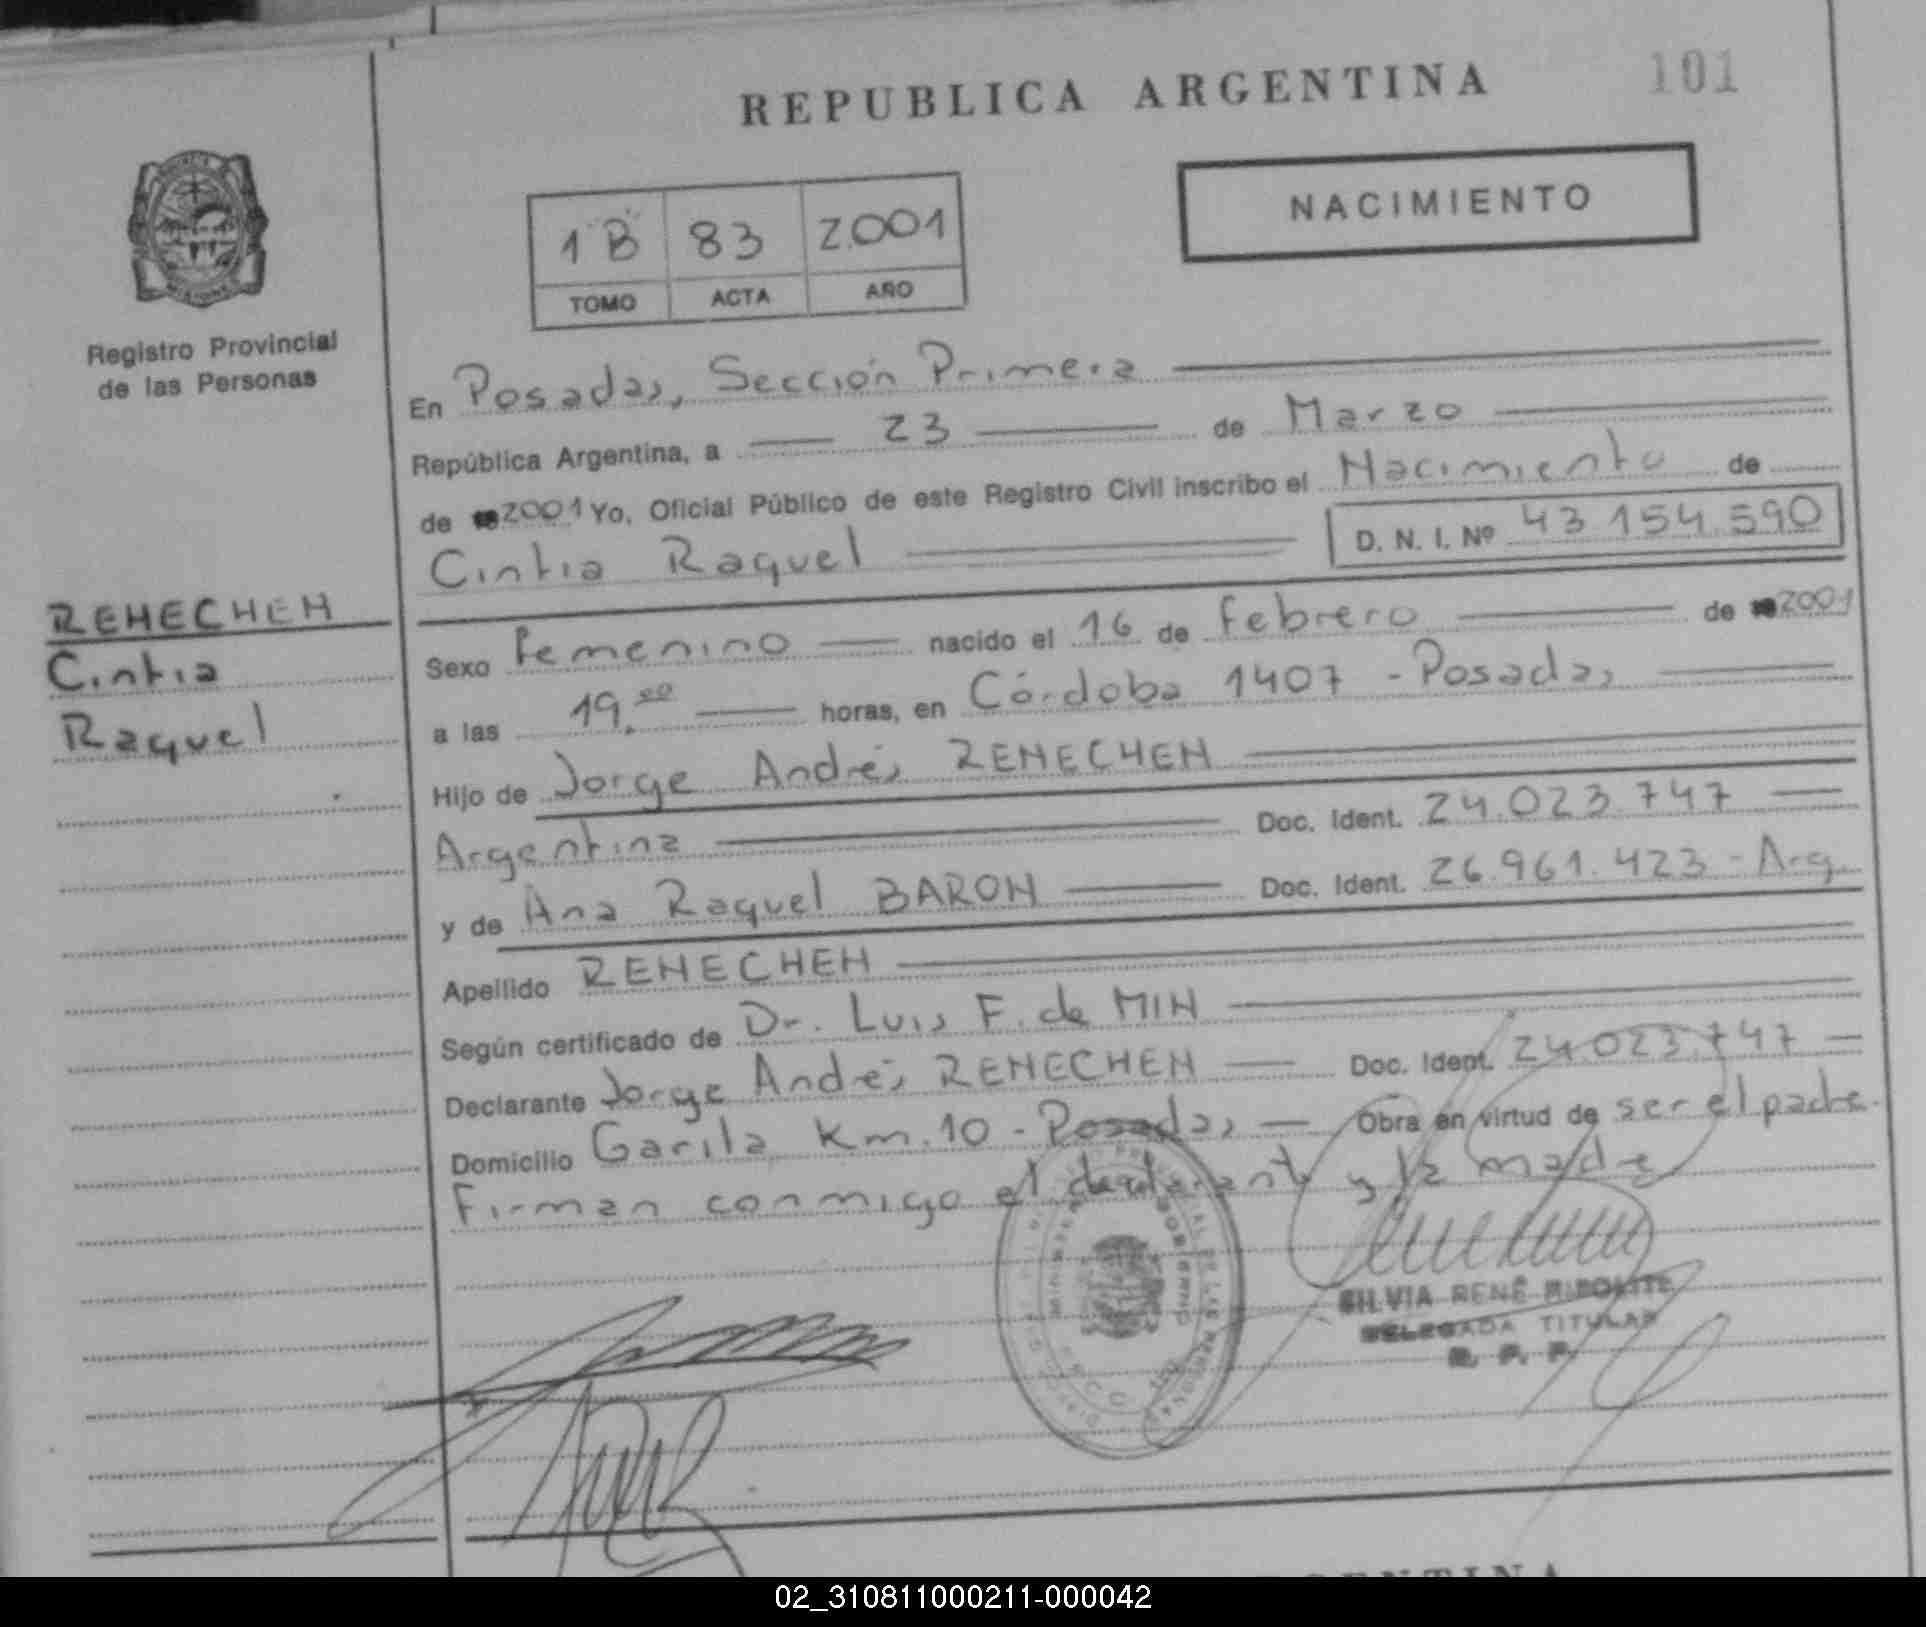 REPUBLICA ARGENTINA
101
NACIMIENTO
1 B 83 2001
TOMO ACTA AÑO
MISIONES
Registro Provincial
de las Personas
En Posadas, Sección Primera
República Argentina, a 23 de Marzo
de 2001 Yo, Oficial Público de este Registro Civil inscribo el Nacimiento de
Cintia Raquel D. N. I. Nº 43 154.590
RENECHEN
Cintia
Raquel
Sexo Femenino nacido el 16 de Febrero de 2001
a las 19.00 horas, en Córdoba 1407 - Posadas
Hijo de Jorge Andrés RENECHEN
Argentina Doc. Ident. 24.023.747
y de Ana Raquel BARON Doc. Ident. 26.961.423 - Arg.
Apellido RENECHEN
Según certificado de Dr. Luis F. de MIN
Declarante Jorge Andrés RENECHEN Doc. Ident. 24.023.747
Domicilio Garita Km.10 - Posadas Obra en virtud de ser el padre.
Firman conmigo el declarante y la madre
SILVIA RENÉ
DELEGADA TITULAR
R. P. P.
ARGENTINA
02_310811000211-000042